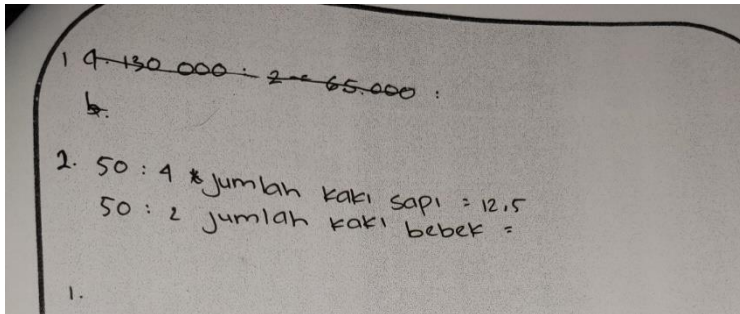 1 a. 130 000 : 2 = 65.000 :
b.
2. 50 : 4 jumlah kaki sapi = 12,5
50 : 2 jumlah kaki bebek =
1.